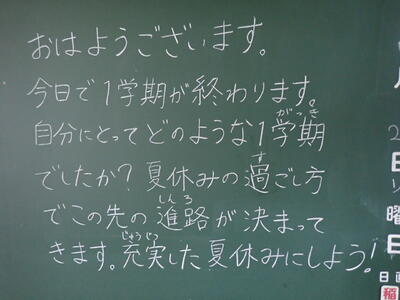 おはようございます。
今日で1学期が終わります。
自分にとってどのような1学期
がっき
でしたか?夏休みの過ごし方
す
でこの先の進路が決まって
しんろ
きます。充実した夏休みにしよう!
じゅうじつ
2
日
曜
日
日直